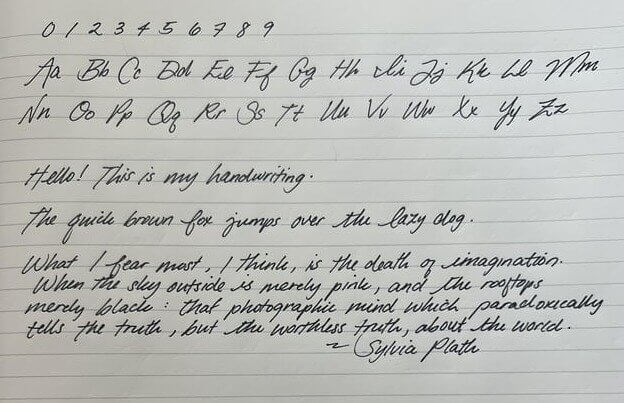 0 1 2 3 4 5 6 7 8 9
Aa Bb Cc Dd Ee Ff Gg Hh Ii Jj Kk Ll Mm
Nn Oo Pp Qq Rr Ss Tt Uu Vv Ww Xx Yy Zz
Hello! This is my handwriting.
The quick brown fox jumps over the lazy dog.
What I fear most, I think, is the death of imagination.
When the sky outside is merely pink, and the rooftops
merely black: that photographic mind which paradoxically
tells the truth, but the worthless truth, about the world.
~ Sylvia Plath